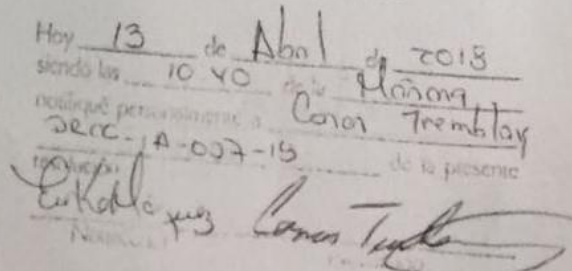 Hoy 13 de Abril de 2018
siendo las 10 40 de la Mañana,
notifiqué personalmente a Conor Tremblay
A-007-18 de la presente
resolución